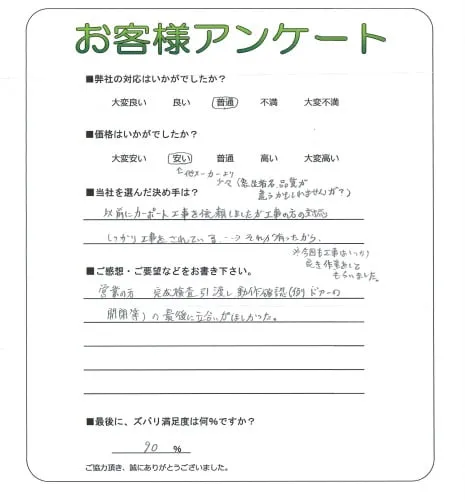 お客様アンケート
■弊社の対応はいかがでしたか?
大変良い 良い 普通 不満 大変不満
■価格はいかがでしたか?
大変安い 安い 普通 高い 大変高い
他メーカーより
少々(製品が
違うかもしれませんが?)
■当社を選んだ決め手は?
以前にカーポート工事を依頼しましたが工事の方の対応
しっかり工事をされている…→それが有ったから、
※今回も工事はしっかり
作業をして
もらいました。
■ご感想・ご要望などをお書き下さい。
営業の方 完成検査引渡し動作確認(例ドアーの
開閉等)の最後に立合いがほしかった。
■最後に、ズバリ満足度は何%ですか?
90 %
ご協力頂き、誠にありがとうございました。